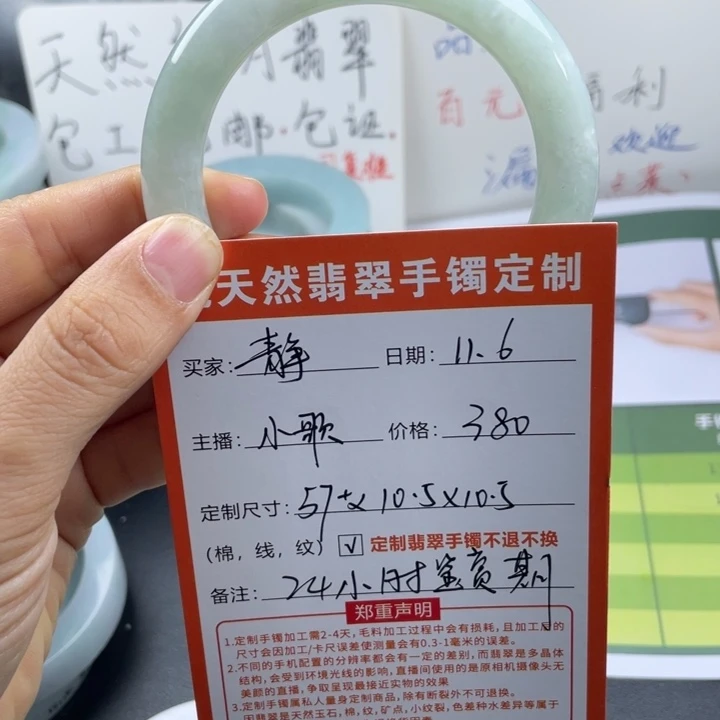 天然 翡翠
包工 包邮·包证·
品
百元 福利
欢迎
漏
天然翡翠手镯定制
买家:静 日期:11.6
主播:小歌 价格:380
定制尺寸:57+x10.5x10.5
(棉,线,纹)☑定制翡翠手镯不退不换
备注:24小时鉴赏期
郑重声明
1.定制手镯加工需2-4天,毛料加工过程中会有损耗,且加工后的
尺寸会因加工/卡尺误差使测量会有0.3-1毫米的误差。
2.不同的手机配置的分辨率都会有一定的差别,而翡翠是多晶体
结构,会受到环境光线的影响,直播间使用的是原相机摄像头无
美颜的直播,争取呈现最接近实物的效果
3.定制手镯属私人量身定制商品,除有断裂外不可退换。
因翡翠是天然玉石,棉,纹,矿点,小纹裂,色差种水差异等属于
手